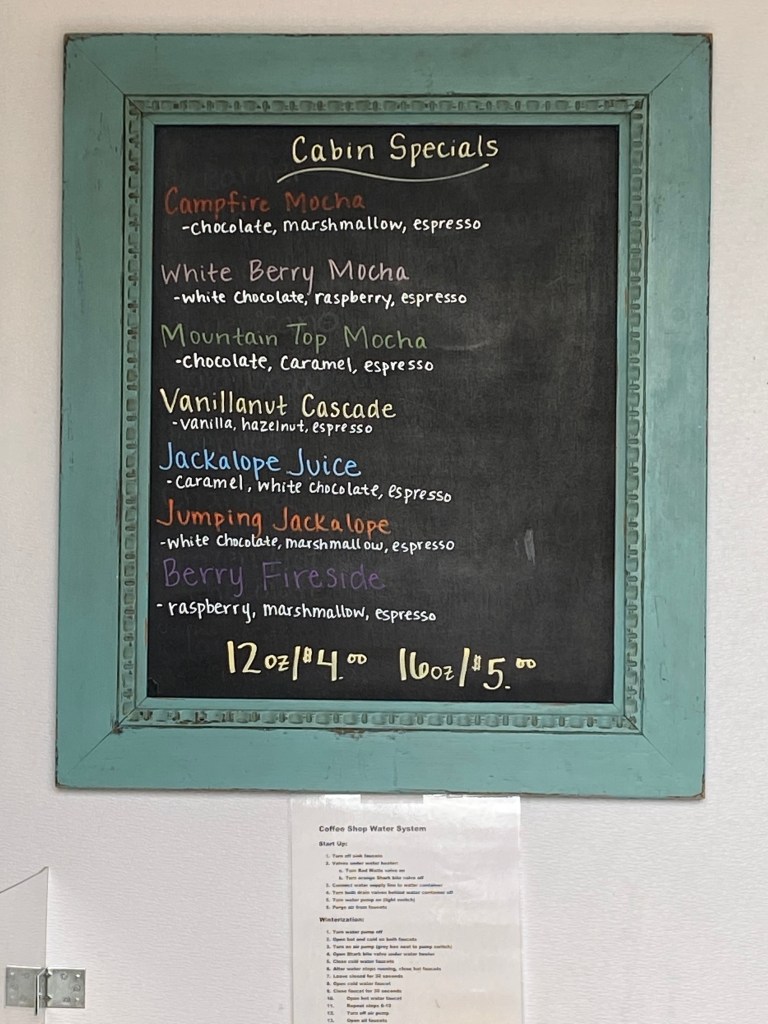 Cabin Specials
Campfire Mocha
-chocolate, marshmallow, espresso
White Berry Mocha
-white chocolate, raspberry, espresso
Mountain Top Mocha
-chocolate, caramel, espresso
Vanillanut Cascade
-vanilla, hazelnut, espresso
Jackalope Juice
-caramel, white chocolate, espresso
Jumping Jackalope
-white chocolate, marshmallow, espresso
Berry Fireside
- raspberry, marshmallow, espresso
12oz/$4.00 16oz/$5.00
Coffee Shop Water System
Start Up:
1. Turn off sink faucets
2. Valves under water heater:
a. Turn Red Watts valve on
b. Turn orange Shark bite valve off
3. Connect water supply line to water container
4. Turn both drain valves behind water container off
5. Turn water pump on (light switch)
6. Purge air from faucets
Winterization:
1. Turn water pump off
2. Open hot and cold on both faucets
3. Turn on air pump (grey box next to pump switch)
4. Open Shark bite valve under water heater
5. Close cold water faucets
6. After water stops running, close hot faucets
7. Leave closed for 30 seconds
8. Open cold water faucet
9. Close faucet for 30 seconds
10. Open hot water faucet
11. Repeat steps 8-10
12. Turn off air pump
13. Open all faucets